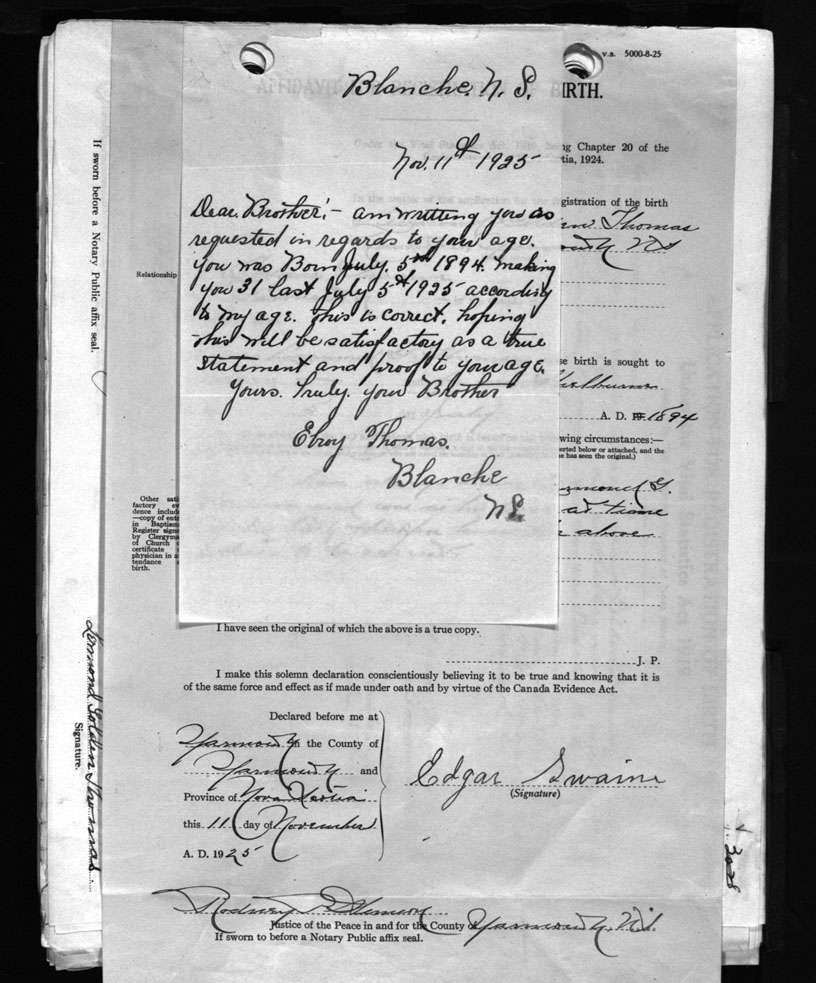 v.s. 5000-8-25
AFFIDAVIT
BIRTH.
Blanche. N. S.
Nov. 11th 1925
Dear Brother:- am writting you as
requested in regards to your age.
you was Born July. 5th 1894. making
you 31 last July 5th 1925 according
to my age. this is correct, hoping
this will be satisfactory as a true
statement and proof to your age.
Yours. Truly. your Brother
Elroy Thomas.
Blanche
N.S.
ng Chapter 20 of the
tia, 1924.
gistration of the birth
Thomas
N S
se birth is sought to
A. D. 1894
wing circumstances:—
erted below or attached, and the
e has seen the original.)
G.
at time
above
If sworn before a Notary Public affix seal.
Relationship
Other sati
factory ev
dence includ
—copy of entr
in Baptism
Register signe
by Clergyma
of Church o
certificate
physician in a
tendance a
birth.
I have seen the original of which the above is a true copy.
J. P.
I make this solemn declaration conscientiously believing it to be true and knowing that it is
of the same force and effect as if made under oath and by virtue of the Canada Evidence Act.
Declared before me at
Yarmouth in the County of
Yarmouth and
Province of Nova Scotia
this 11 day of November
A. D. 1925
Edgar Swaine
(Signature)
Golden Thomas
Signature.
Rodney
Justice of the Peace in and for the County of Yarmouth, N.S.
If sworn to before a Notary Public affix seal.